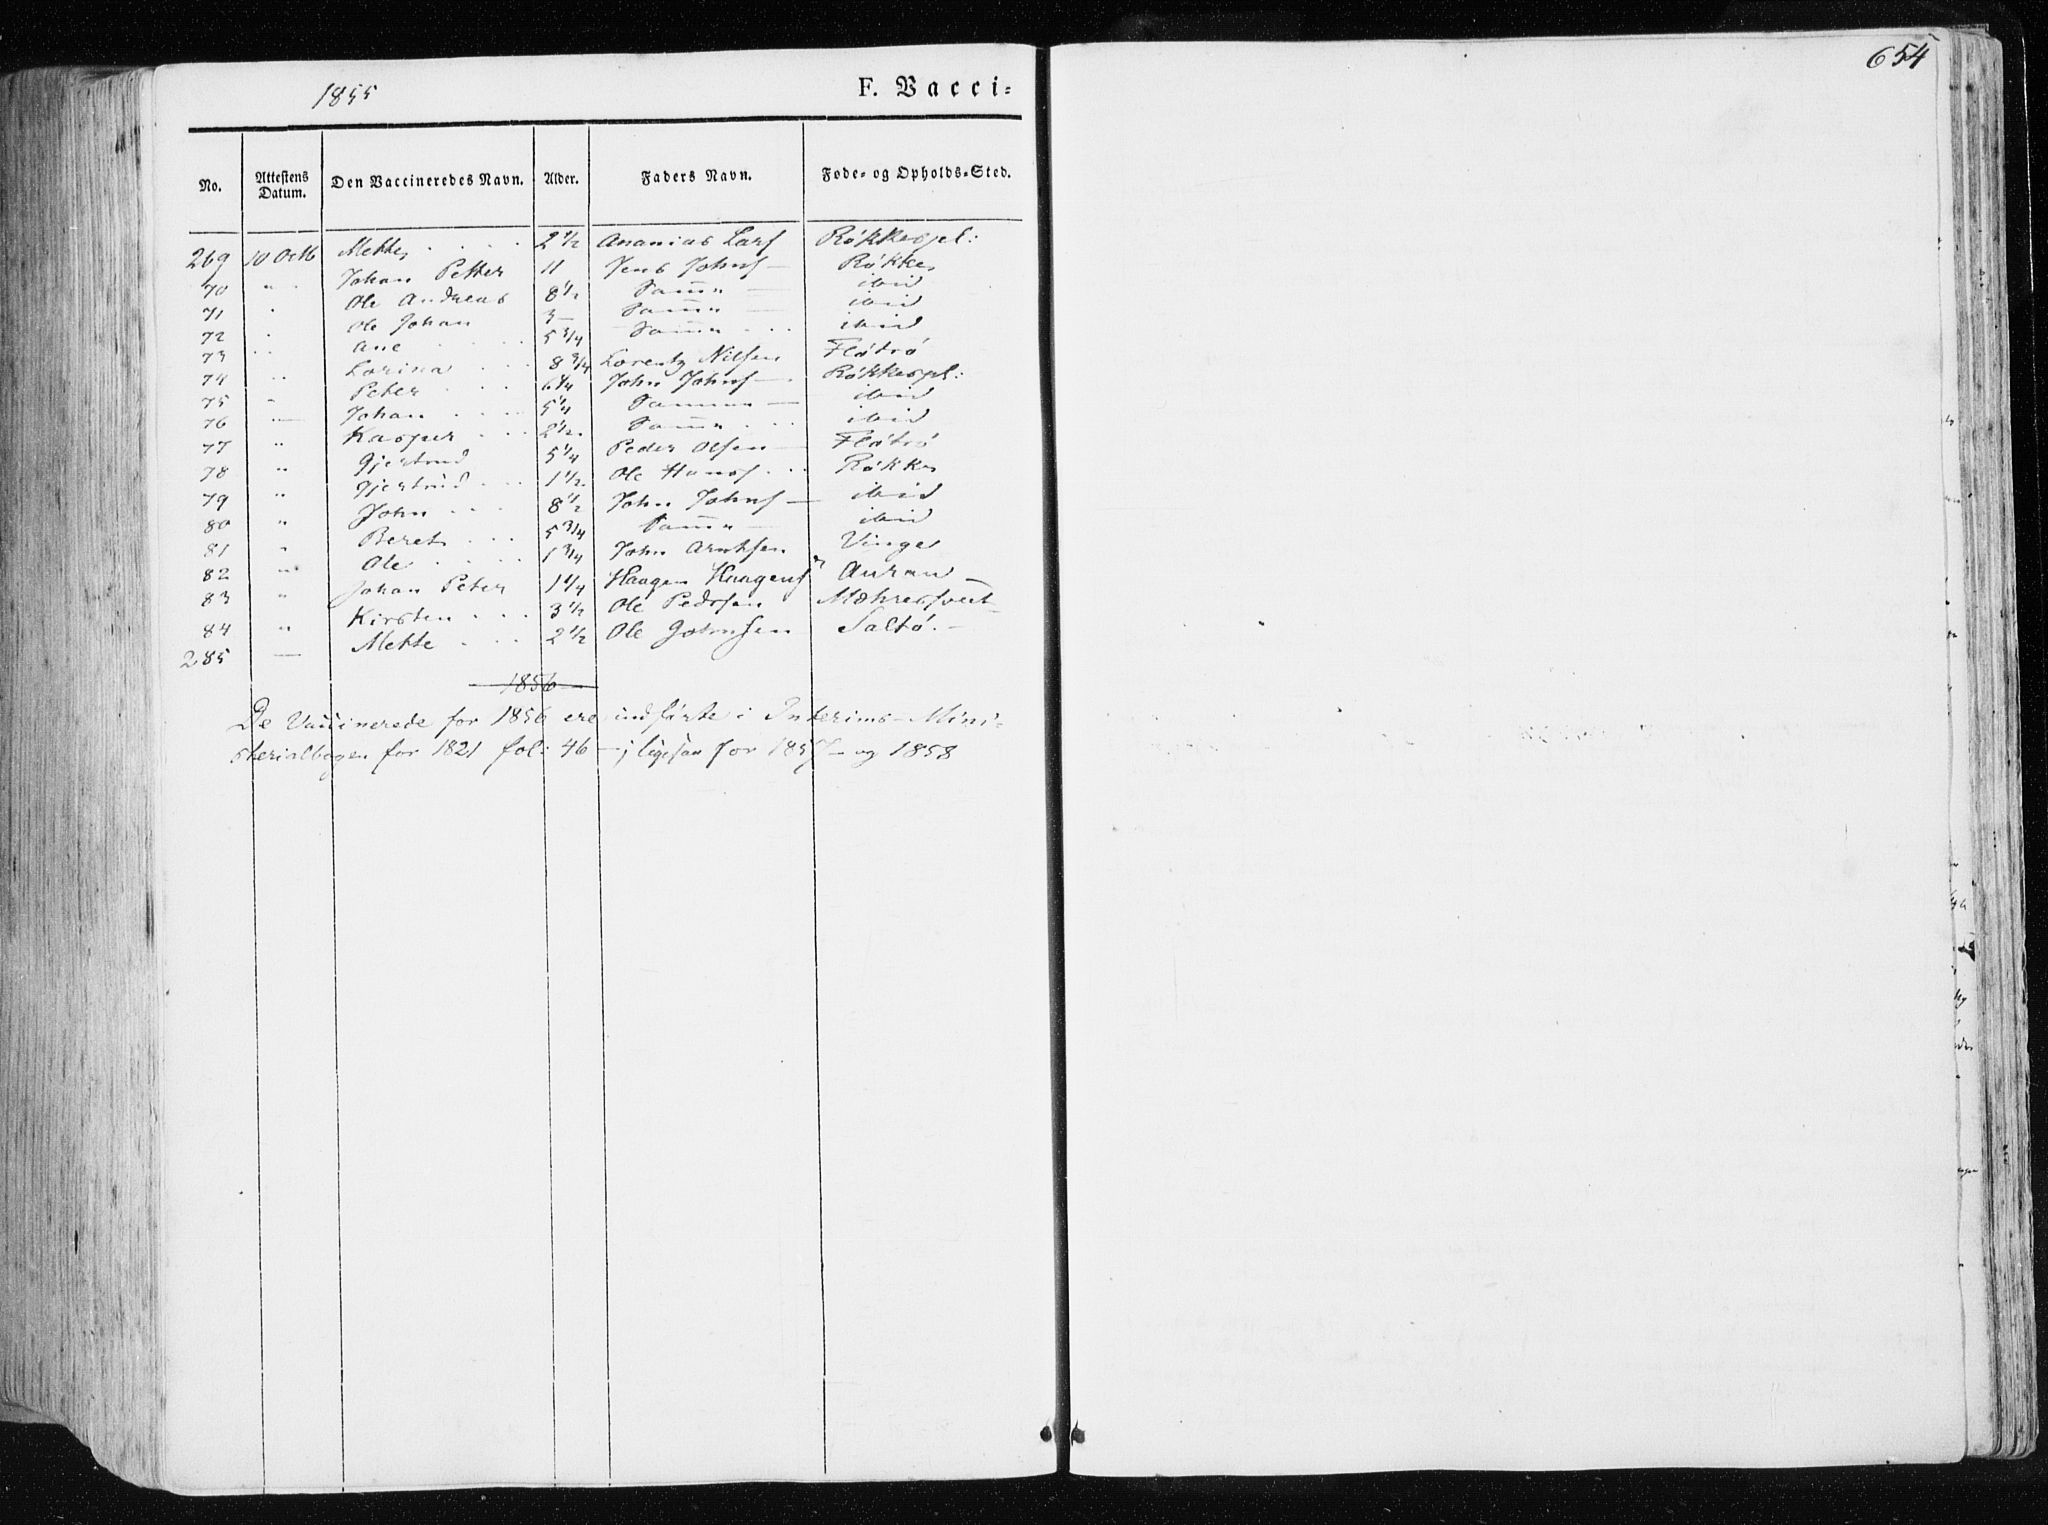 654
1855
F. Vacci=
No. Attestens Datum. Den Vaccineredes Navn. Alder. Faders Navn. Føde- og Opholds-Sted.
269 10 Octb Mette . . . . 2 1/2 Ananias Lars Røkkespl:
70 " Johan Petter 11 Jens Johns — Røkke
71 " Ole Andreas 8 1/2 Samme — ibid
72 " Ole Johan 3 — Samme — ibid
73 " Ane . . . . 5 3/4 Samme . . . ibid
74 " Lorina . . . 8 3/4 Lorentz Nilsen Fløtrø
75 " Peter . . . 6 1/4 John Johns — Røkkespl:
76 — Johan . . . . 5 1/4 Samme — ibid
77 " Kasper . . . 2 1/2 Samme . . . ibid
78 " Gjertrud 5 1/4 Peder Olsen — Fløtrø
79 " Gjertrud . . . 1 1/2 Ole Hans . . . Røkke
80 " John . . . 8 1/2 John Johns — ibid
81 " Beret . . . 5 3/4 Samme — ibid
82 " Ole . . . . 1 3/4 John Arntsen Vinge
83 " Johan Peter 1 1/4 Haagen Haagens Auran —
84 " Kirsten . . . 3 1/2 Ole Pedersen
285 — Mette . . . 2 1/2 Ole Johnsen Saltø. —
1856
De Vaccinerede for 1856 ere indførte i Interims-Mini-
sterialbogen for 1821 fol: 46 —; ligesaa for 1857 — og 1858